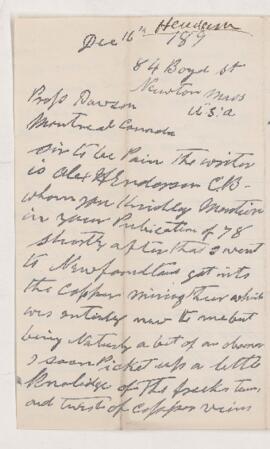 Henderson
Dec 16th 189
84 Boyd St
Newton Mass
U.S.a
Profs Dawson
Montreal Canada
Sir to be Pain the writer
is Alex HEnderson C.B-
whom you Kindley Mention
in your Publication of 78
Shortly after that I went
to Newfoundland got into
the Copper mining their which
was entirely new to me but
being Naturly a bit of an observer
I soon Picket up a little
Knolidge of the freeks turns
and twists of copper veins